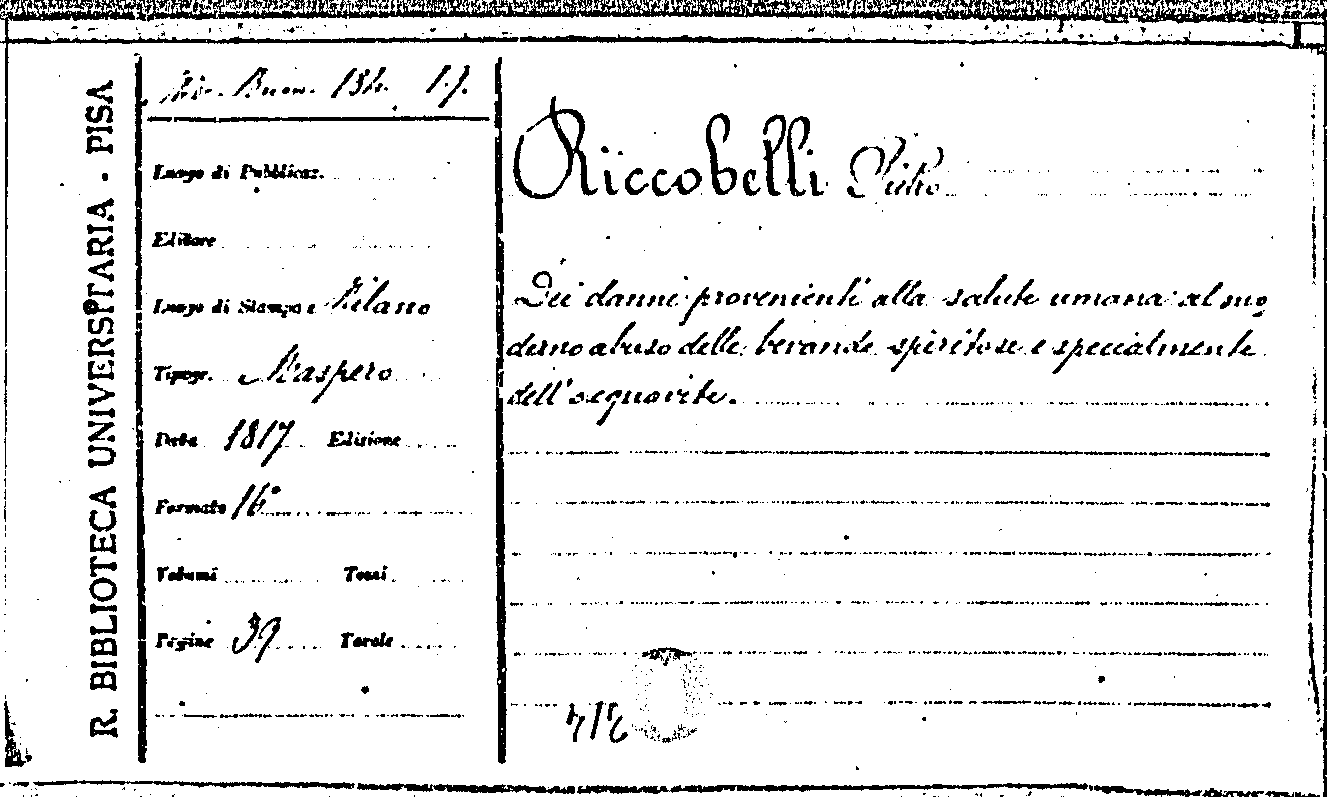 R. BIBLIOTECA UNIVERSITARIA - PISA
Buon. 134. 17.
Luogo di Pubblicaz.
Editore
Luogo di Stampa Milano
Tipogr. Maspero
Data 1817 Edizione
Formato 16°
Volumi Tomi
Pagine 39 Tavole
Riccobelli Pietro
Dei danni provenienti alla salute umana al mo-
derno abuso delle bevande spiritose e specialmente
dell'acquavite.